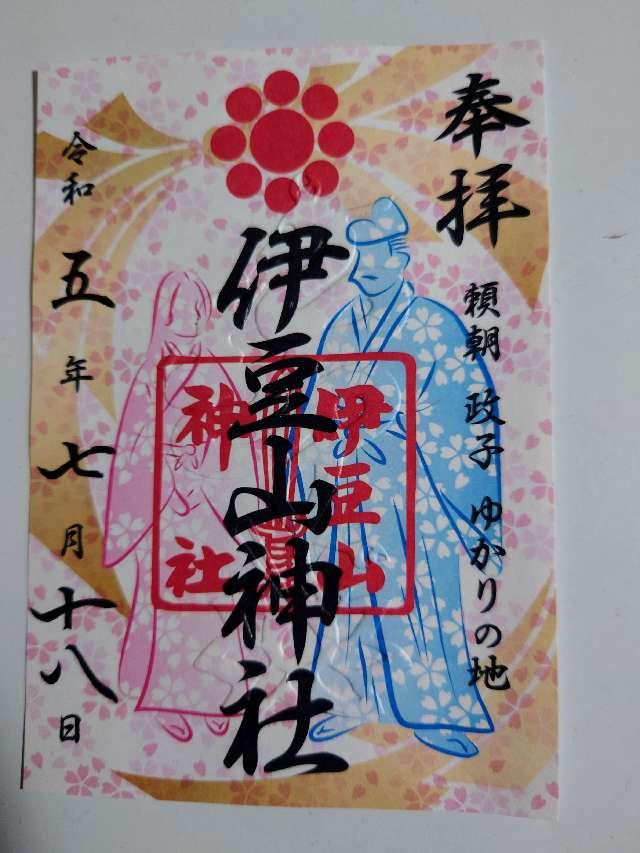 奉拝
頼朝 政子 ゆかりの地
伊豆山神社
伊豆山
神社
令和五年七月十八日